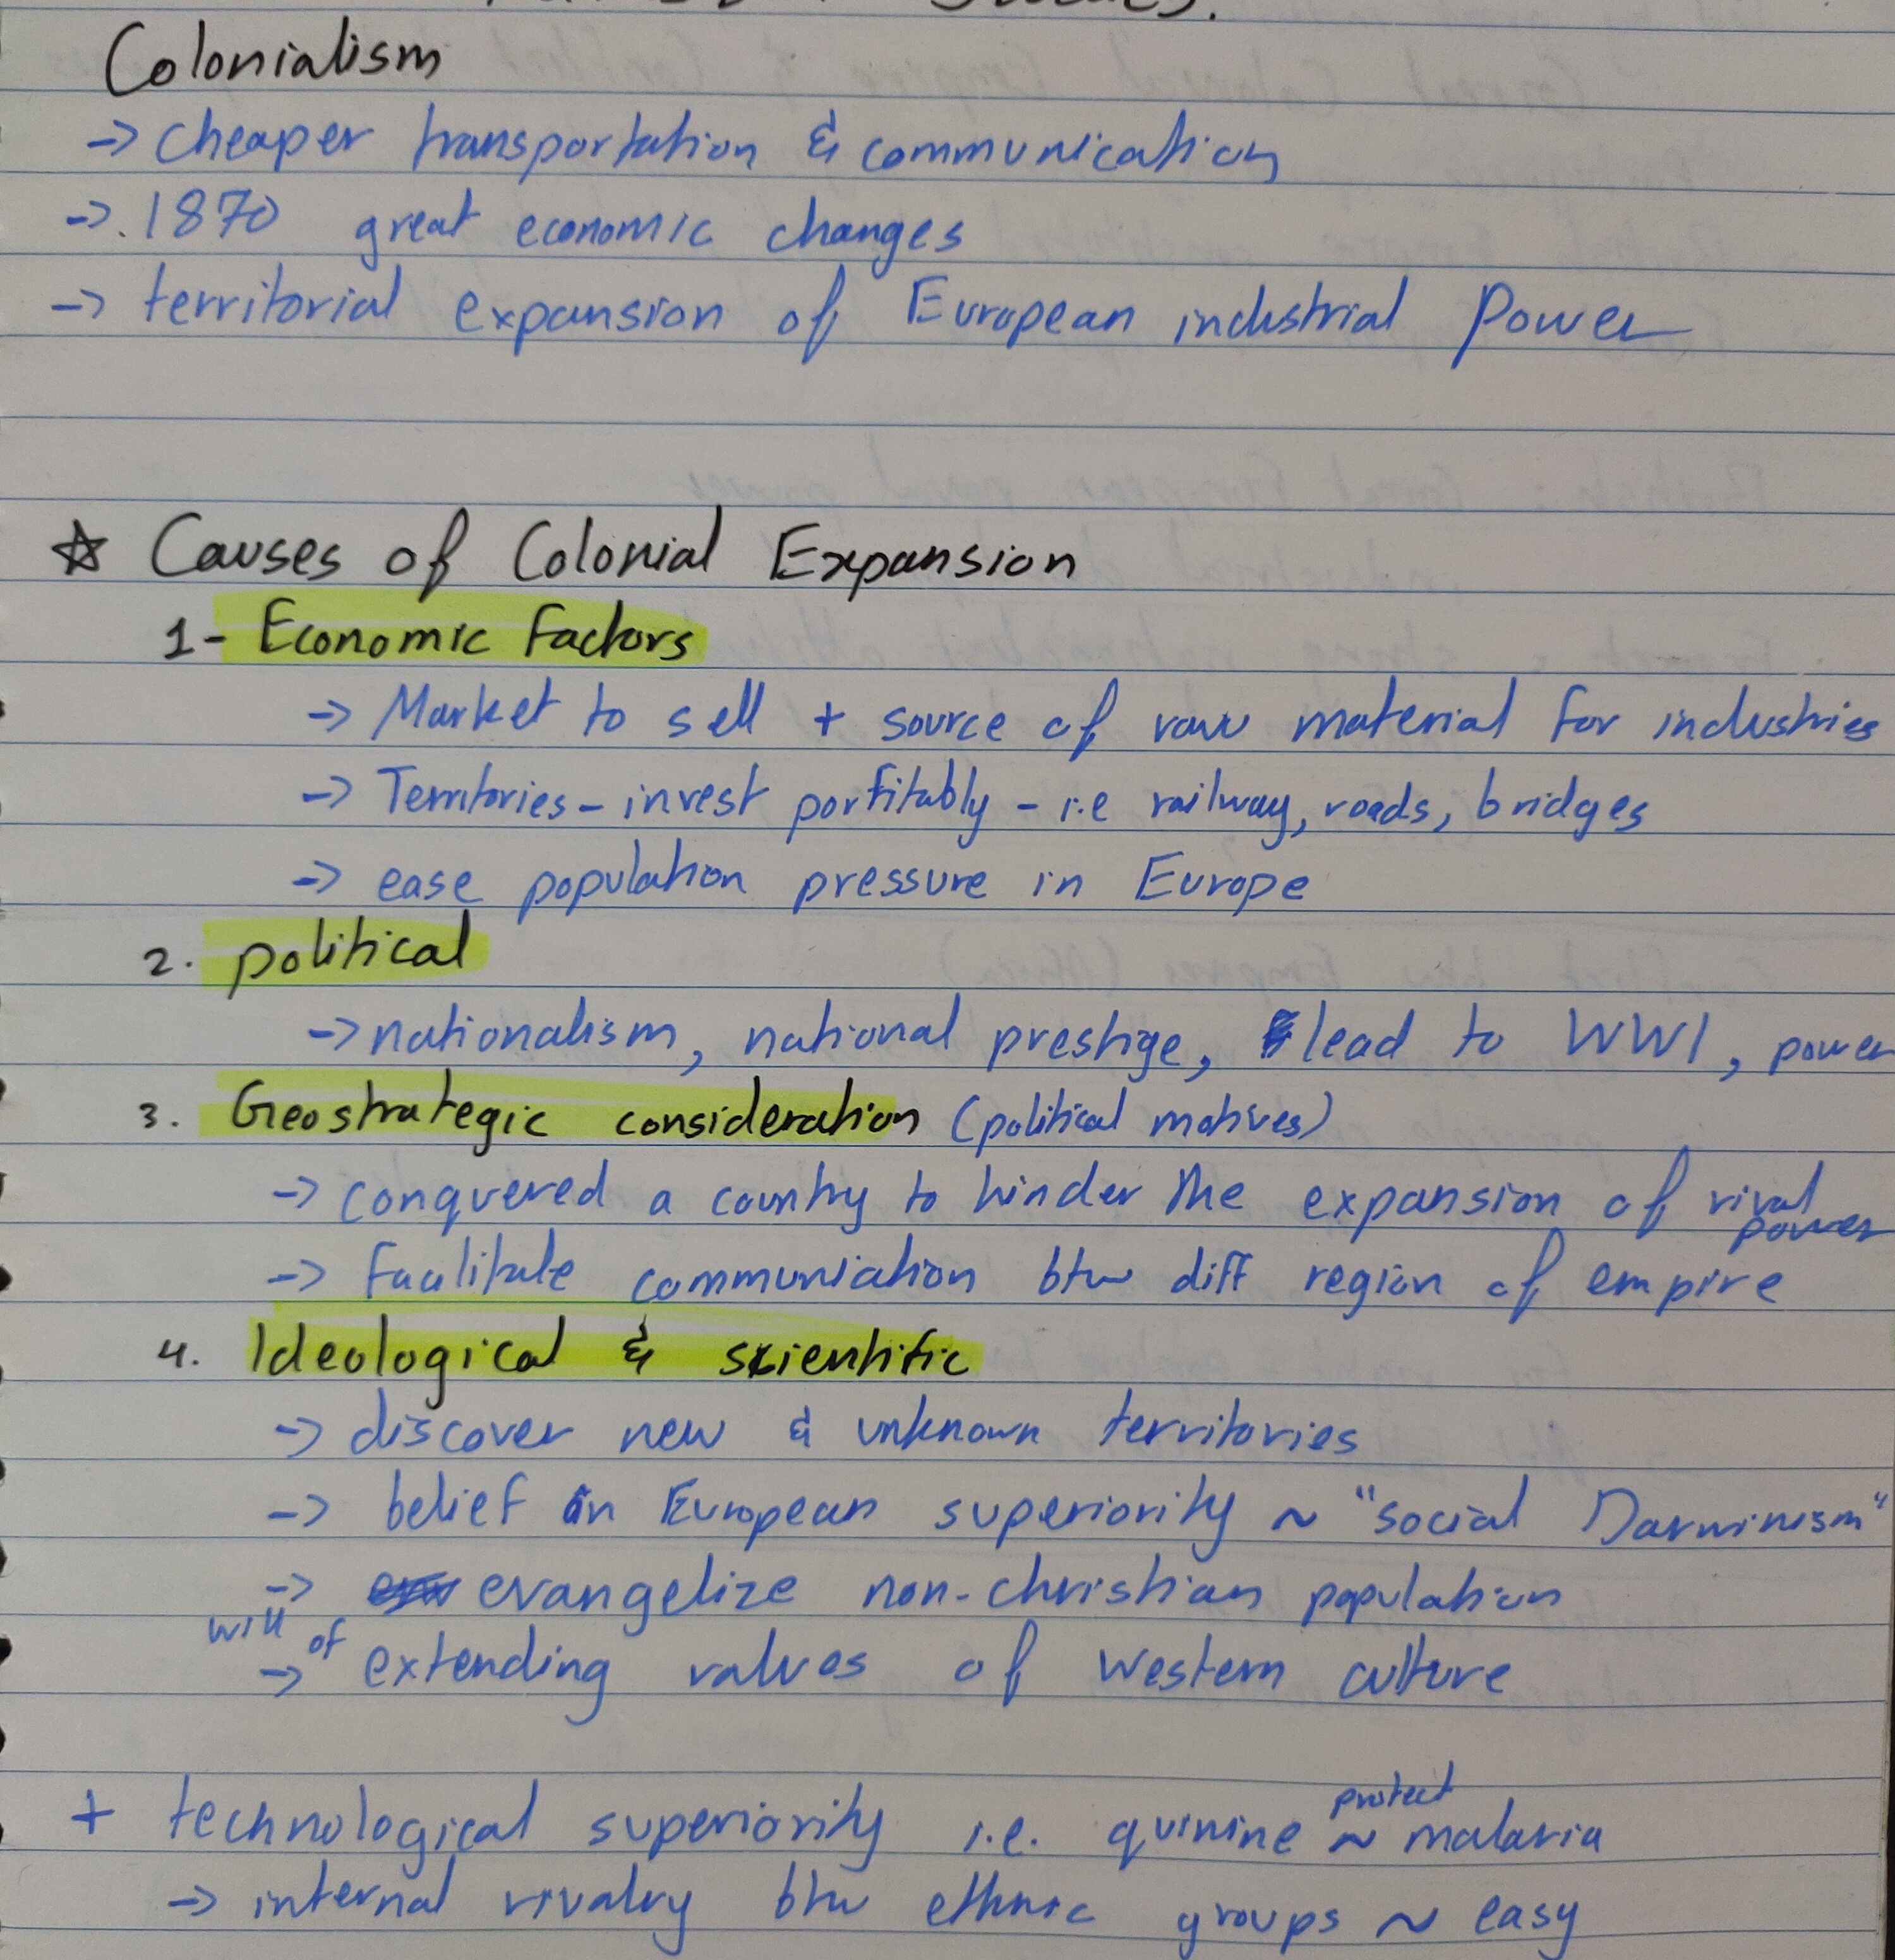 Colonialism
-> cheaper transportation & communication
->. 1870 great economic changes
-> territorial expansion of European industrial Power
☆ Causes of Colonial Expansion
1- Economic Factors
-> Market to sell + source of raw material for industries
-> Territories - invest porfitably - i.e railway, roads, bridges
-> ease population pressure in Europe
2. political
-> nationalism, national prestige, lead to WWI, power
3. Geostrategic consideration (political motives)
-> conquered a country to hinder the expansion of rival power
-> Facilitate communication btw diff region of empire
4. Ideological & scientific
-> discover new & unknown territories
-> belief in European superiority ~ "social Darwinism"
-> evangelize non-christian population
will of
-> extending values of western culture
+ technological superiority i.e. quinine ~ protect malaria
-> internal rivalry btw ethnic groups ~ easy